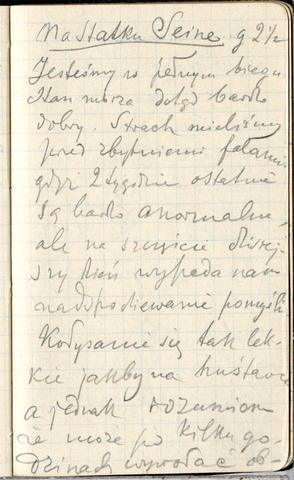 Na Statku Seine g 2½
Jesteśmy w pełnym biegu
Stan morza dotąd bardo
dobry. Strach mieliśmy
przed zbytniemi falami
gdyż 2 tygodnie ostatnie
są bardo anormalne,
ale na szczęście dzisiej-
szy dzień wypada nam
nadspodziewanie pomyśl
Kołysanie się tak lek-
kie jakby na huśtawce
a jednak rozumiem
że może po kilku go-
dzinach wywołać ob-